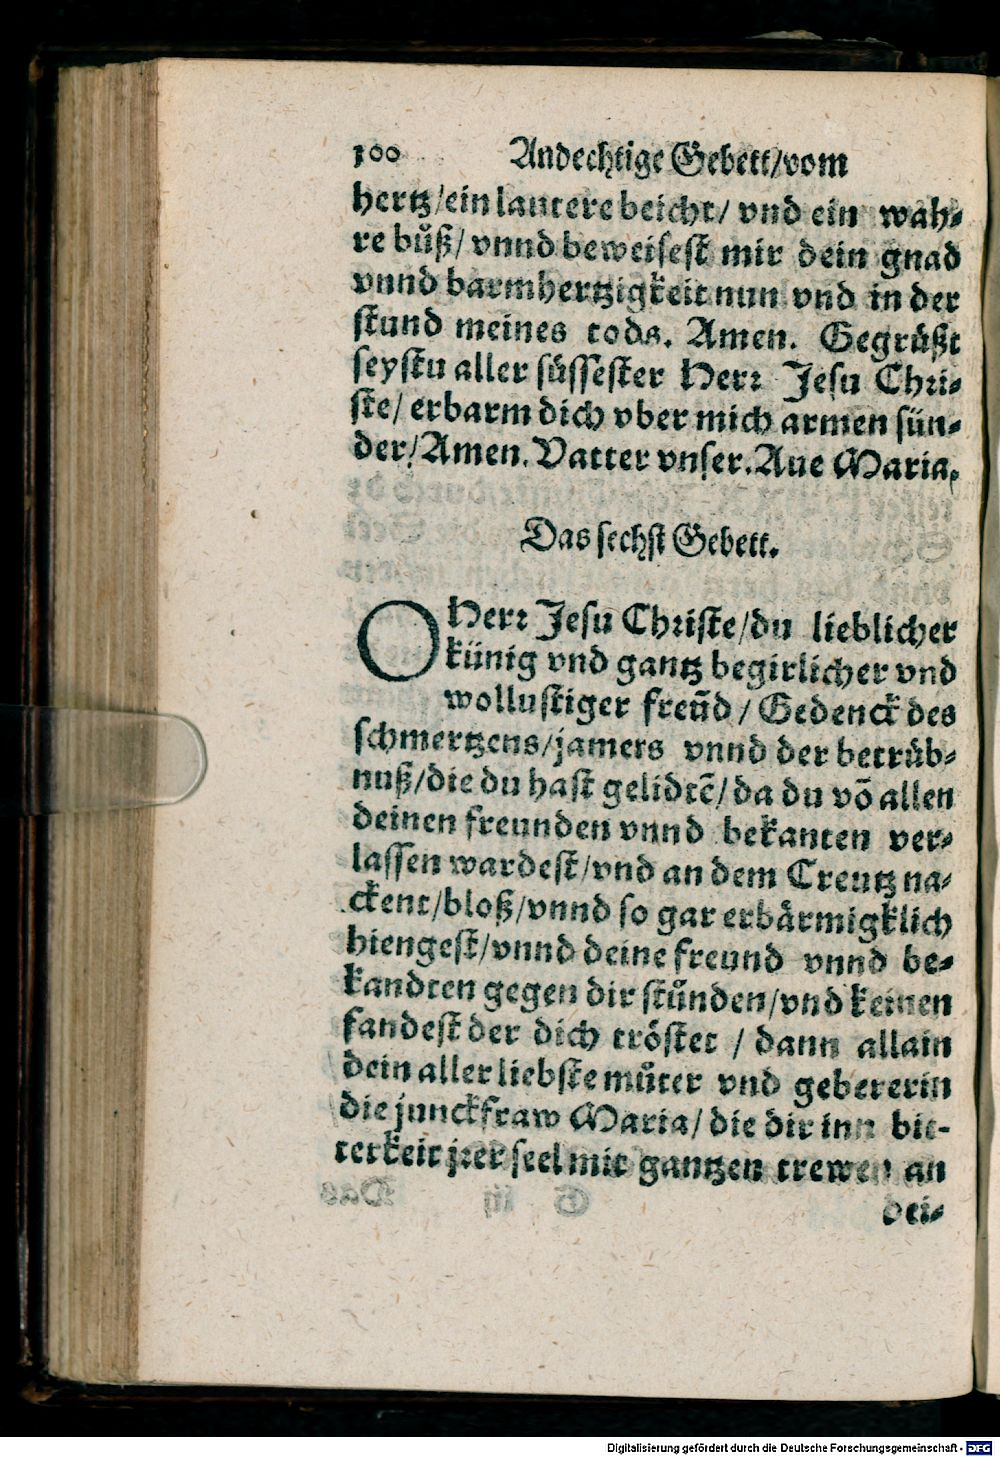 100 Andechtige Gebett/vom
hertz/ein lautere beicht/ vnd ein wah-
re bůß/ vnnd beweisest mir dein gnad
vnnd barmhertzigkeit nun vnd in der
stund meines tods. Amen. Gegrüßt
seystu aller süssester Herr Jesu Chri-
ste/ erbarm dich vber mich armen sün-
der/Amen. Vatter vnser. Aue Maria.
Das sechst Gebett.
O Herr Jesu Christe/du lieblicher
künig vnd gantz begirlicher vnd
wollustiger freūd / Gedenck des
schmertzens/jamers vnnd der betrüb-
nuß/die du hast gelidtē/da du võ allen
deinen freunden vnnd bekanten ver-
lassen wardest/vnd an dem Creutz na-
ckent/bloß/vnnd so gar erbärmigklich
hiengest/vnnd deine freund vnnd be-
kandten gegen dir stůnden/vnd keinen
fandest der dich tröstet / dann allain
dein aller liebste můter vnd gebererin
die junckfraw Maria/ die dir inn bit-
terkeit jrer seel mit gantzen trewen an
dei-
Digitalisierung gefördert durch die Deutsche Forschungsgemeinschaft - DFG